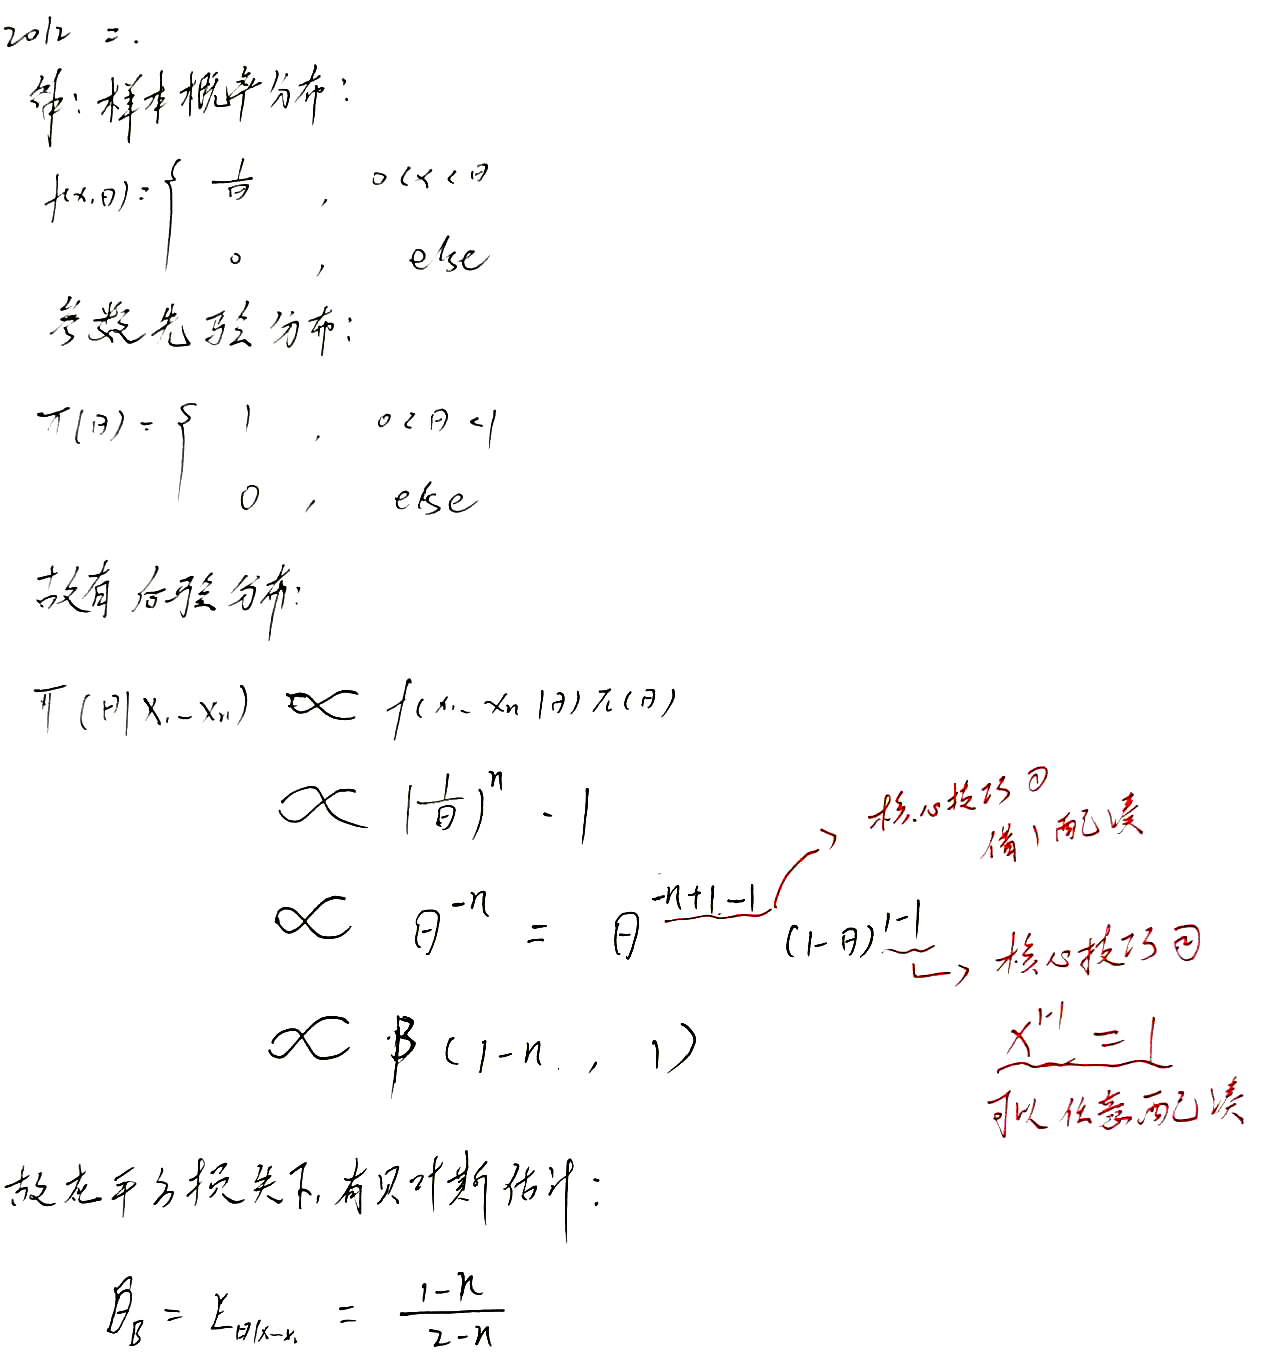 2012 二.
解: 样本概率分布:
f(x,θ) = { 1/θ , 0<x<θ
0 , else
参数先验分布:
π(θ) = { 1 , 0<θ<1
0 , else
故有后验分布:
π(θ|x₁–xₙ) ∝ f(x₁–xₙ|θ)π(θ)
∝ (1/θ)ⁿ · 1
核心技巧①
借1配凑
∝ θ^{-n} = θ^{-n+1-1} (1-θ)^{1-1}
核心技巧②
x^{1-1} = 1
可以任意配凑
∝ β(1-n, 1)
故在平方损失下,有贝叶斯估计:
θ̂_B = E_{θ|x–x₁} = (1-n)/(2-n)